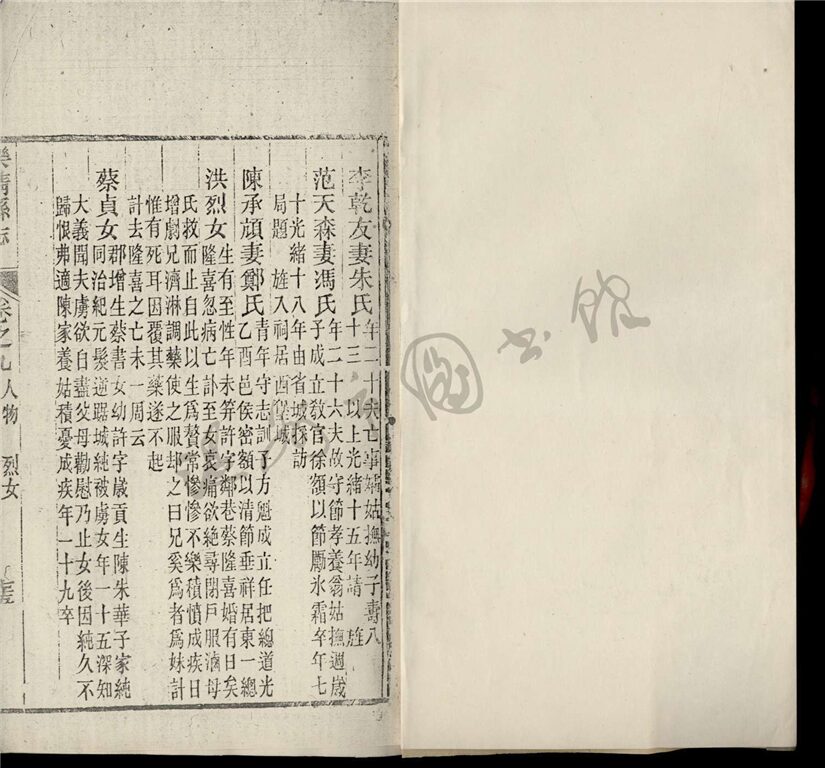 李乾友妻朱氏年二十夫亡事嫡姑撫幼子壽八
十三 以上光緒十五年請 旌
范天森妻馮氏年二十六夫故守節孝養翁姑撫週歲
子成立教官徐額以節勵氷霜卒年七
十光緒十八年由省城採訪
局題 旌入祠居西城
陳承頎妻鄭氏青年守志訓子方魁成立任把總道光
乙酉邑侯密額以清節垂祥居東一總
洪烈女生有至性年未笄許字鄰巷蔡隆喜婚有日矣
隆喜忽病亡訃至女哀痛欲絶尋閉戶服滷母
氏救而止自此以生爲贅常慘慘不樂積憤成疾日
增劇兄濟淋調藥使之服却之曰兄奚爲者爲妹計
惟有死耳因覆其藥遂不起
計去隆喜之亡未一周云
蔡貞女郡增生蔡書女幼許字歲貢生陳朱華子家純
同治紀元髮逆踞城純被虜女年一十五深知
大義聞夫虜欲自盡父母勸慰乃止女後因純久不
歸恨弗適陳家養姑積憂成疾年一十九卒
樂清縣志
卷之九人物 烈女
圖書館